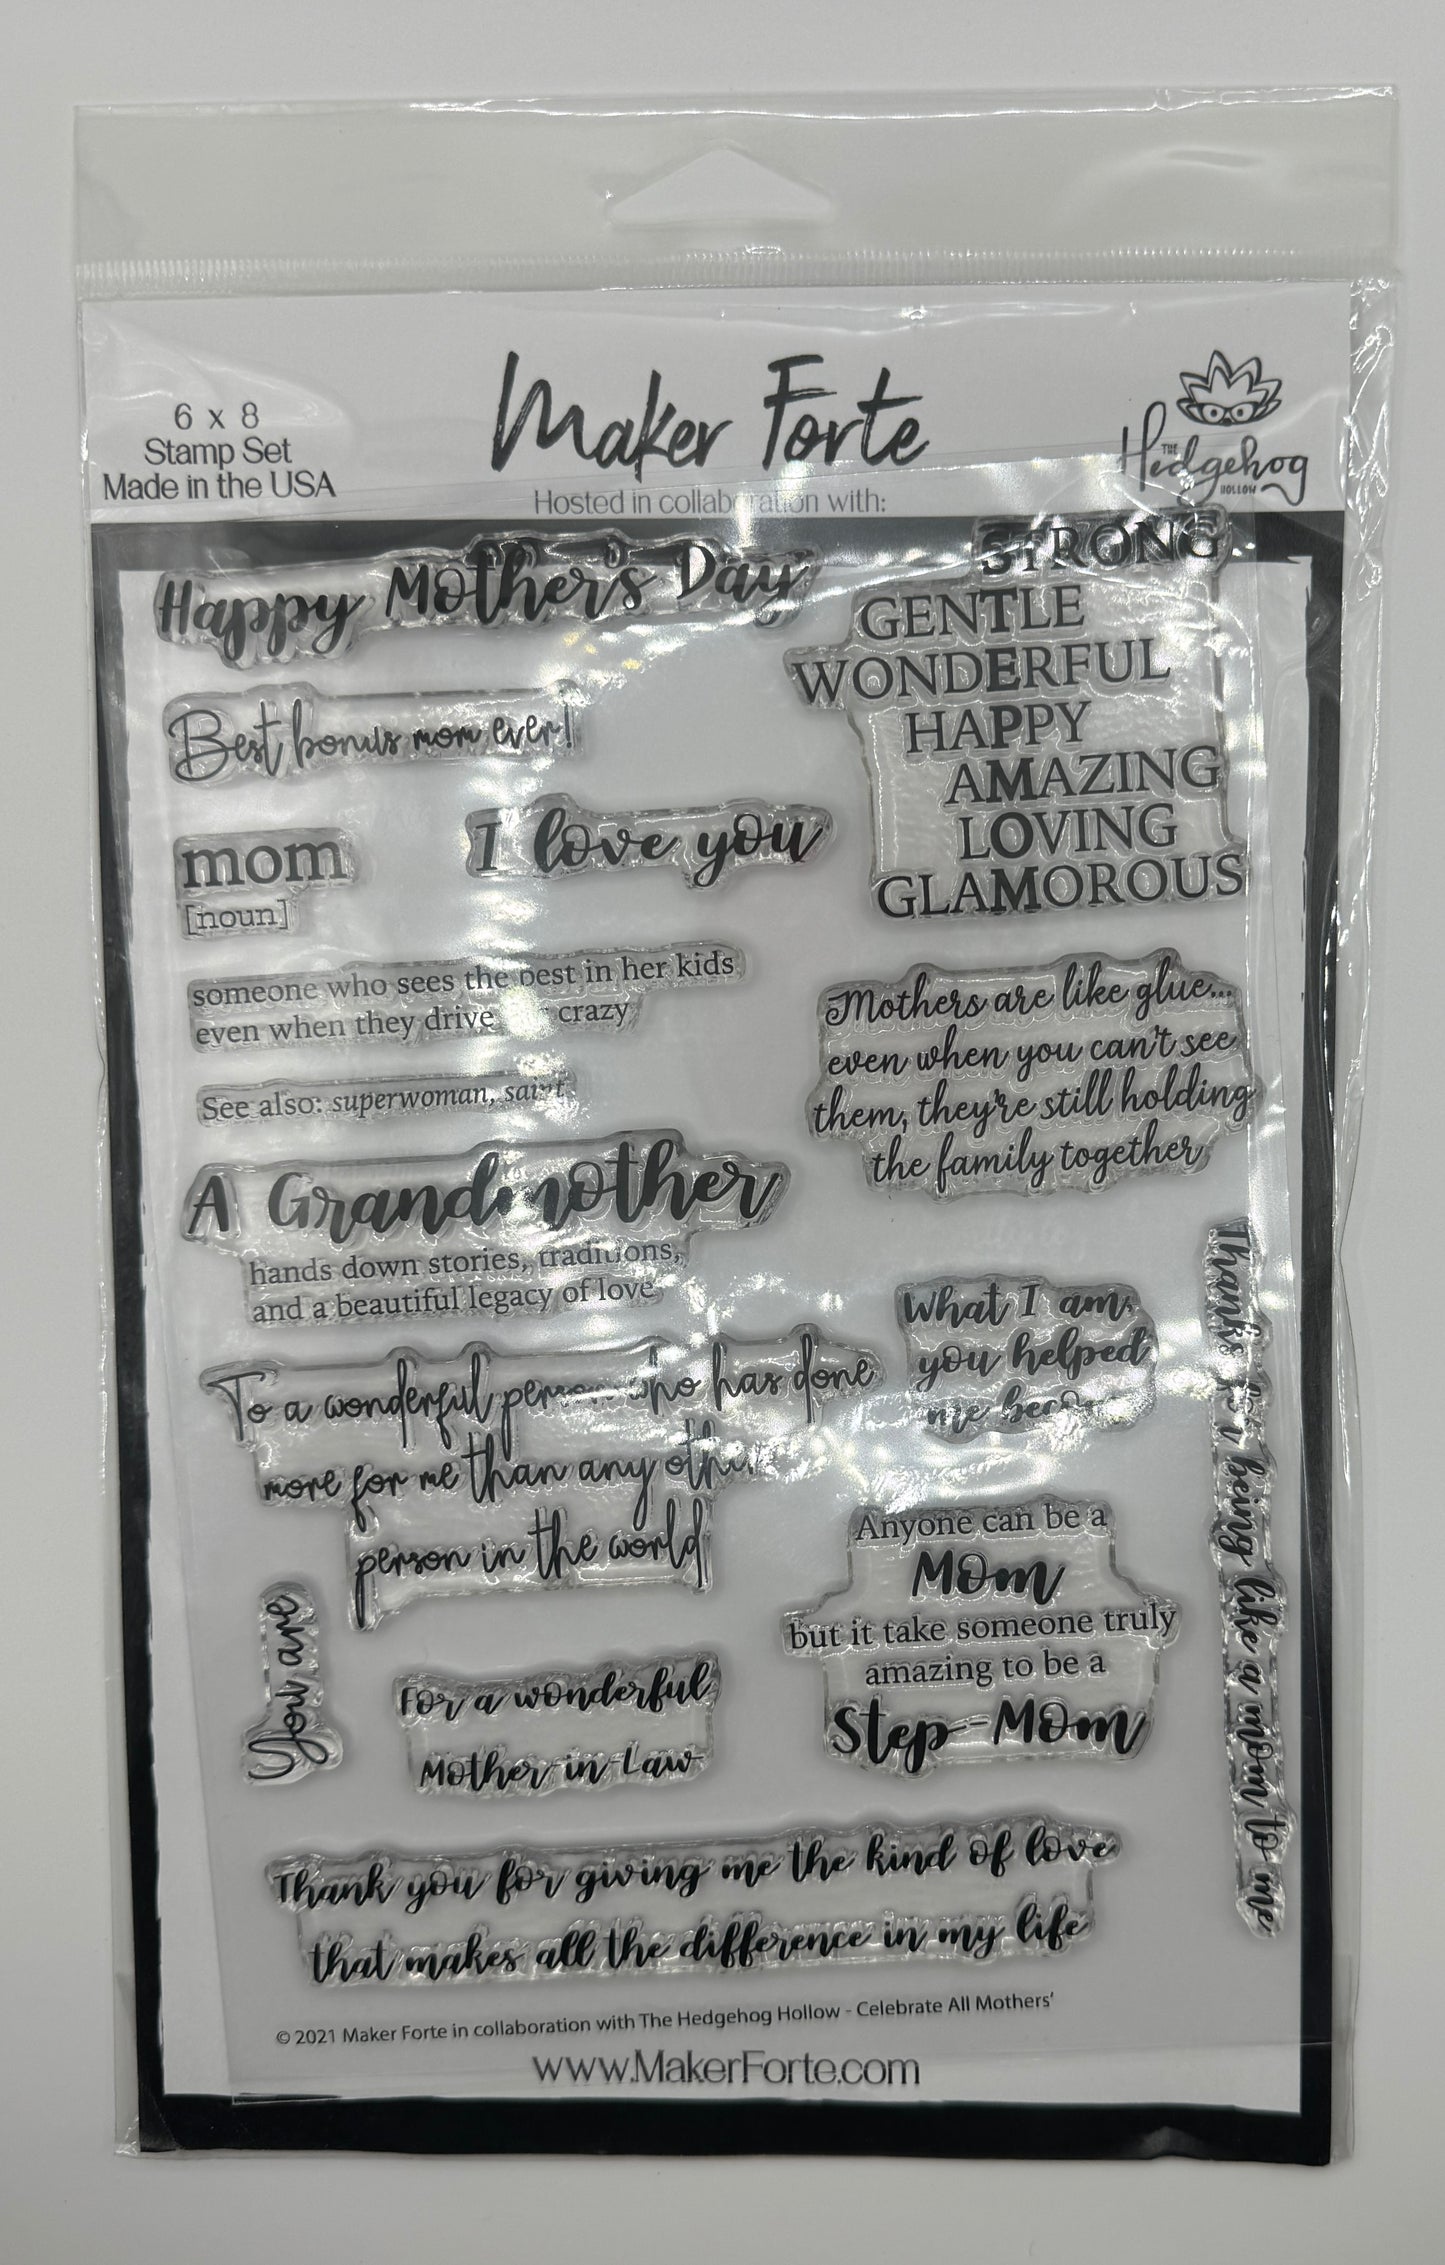 6 x 8
Stamp Set
Made in the USA
Maker Forte
Hosted in collaboration with:
THE
Hedgehog
HOLLOW
Happy Mother's Day
STRONG
GENTLE
WONDERFUL
HAPPY
AMAZING
LOVING
GLAMOROUS
Best bonus mom ever!
I love you
mom
[noun]
someone who sees the best in her kids
even when they drive crazy
See also: superwoman, saint
Mothers are like glue...
even when you can't see
them, they're still holding
the family together
A Grandmother
hands down stories, traditions,
and a beautiful legacy of love
What I am,
you helped
me
Thanks for being like a mom to me
To a wonderful person who has done
more for me than any other
person in the world
Anyone can be a
Mom
but it take someone truly
amazing to be a
Step-Mom
You are
For a wonderful
Mother-in-Law
Thank you for giving me the kind of love
that makes all the difference in my life
© 2021 Maker Forte in collaboration with The Hedgehog Hollow - Celebrate All Mothers'
www.MakerForte.com